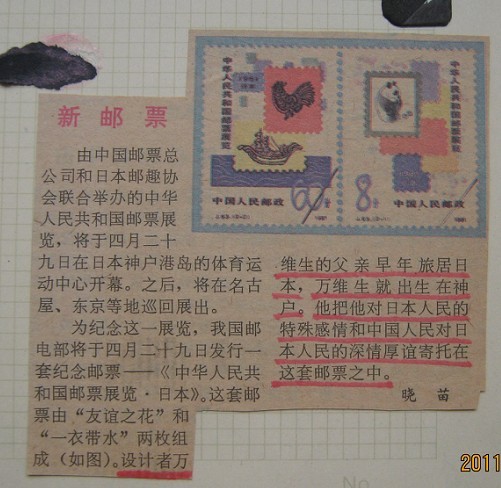 新邮票
中华人民共和国邮票展览
中国人民邮政
60分
J.63.(2-2)
1981
中华人民共和国邮票展览
8分
中国人民邮政
1981
由中国邮票总
公司和日本邮趣协
会联合举办的中华
人民共和国邮票展
览，将于四月二十
九日在日本神户港岛的体育运
动中心开幕。之后，将在名古
屋、东京等地巡回展出。
为纪念这一展览，我国邮
电部将于四月二十九日发行一
套纪念邮票——《中华人民共
和国邮票展览·日本》。这套邮
票由“友谊之花”和
“一衣带水”两枚组
成（如图）。设计者万
维生的父亲早年旅居日
本，万维生就出生在神
户。他把他对日本人民的
特殊感情和中国人民对日
本人民的深情厚谊寄托在
这套邮票之中。
晓苗
2011
No